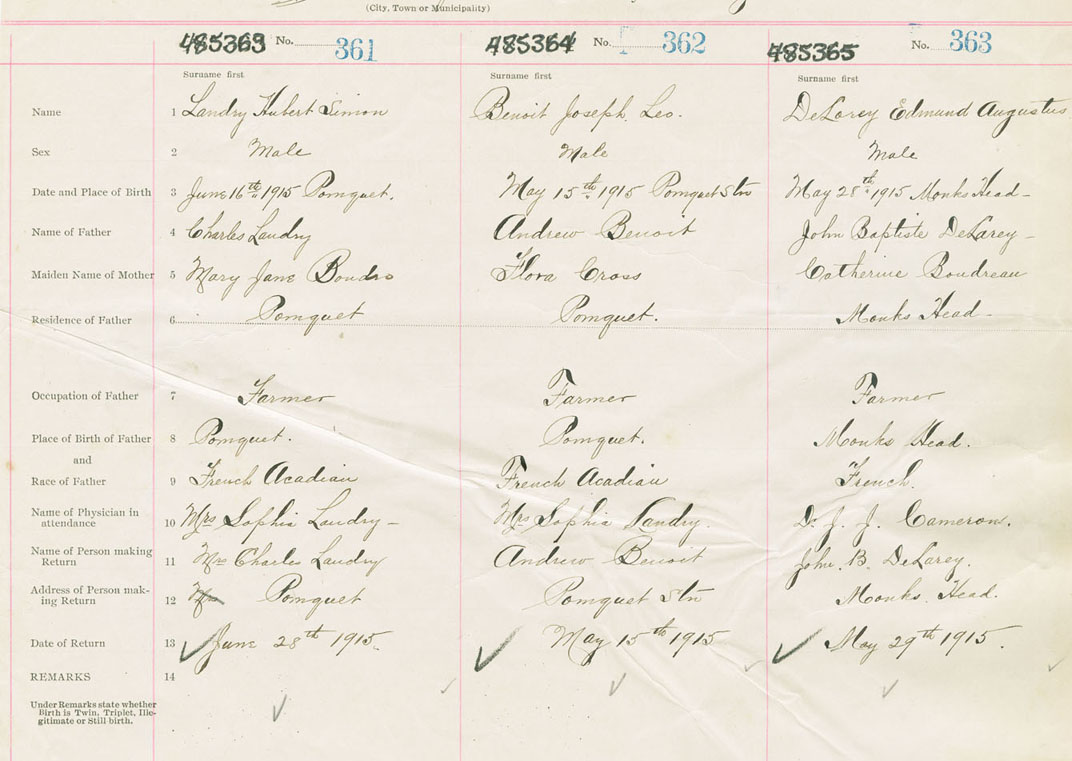 (City, Town or Municipality)
485363 No. 361 485364 No. 362 485365 No. 363
Surname first Surname first Surname first
Name 1 Landry Hubert Simon Benoit Joseph Leo. DeLorey Edmund Augustus
Sex 2 Male Male Male
Date and Place of Birth 3 June 16th 1915 Pomquet. May 15th 1915 Pomquet Stn May 28th 1915 Monks Head -
Name of Father 4 Charles Landry Andrew Benoit John Baptiste DeLorey -
Maiden Name of Mother 5 Mary Jane Flora Cross Catherine Boudreau
Residence of Father 6 Pomquet Pomquet. Monks Head -
Occupation of Father 7 Farmer Farmer Farmer
Place of Birth of Father 8 Pomquet. Pomquet. Monks Head.
and
Race of Father 9 French Acadian French Acadian French.
Name of Physician in
attendance 10 Mrs Sophia Landry - Mrs Sophia Landry. Dr J. J. Cameron.
Name of Person making
Return 11 Mrs Charles Landry Andrew Benoit John. B. DeLorey.
Address of Person mak-
ing Return 12 Pomquet Pomquet Stn Monks. Head.
Date of Return 13 June 28th 1915. May 15th 1915 May 29th 1915.
REMARKS 14
Under Remarks state whether
Birth is Twin, Triplet, Ille-
gitimate or Still birth.